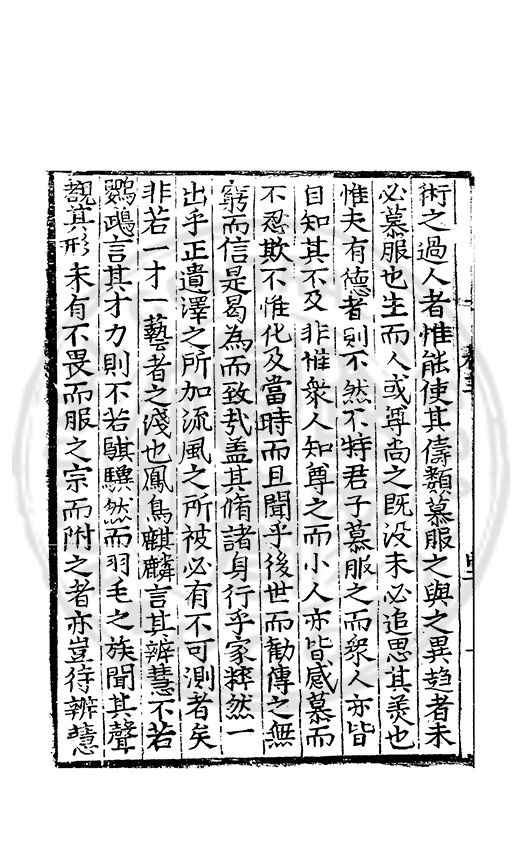 術之過人者惟能使其儔類慕服之與之異趨者未
必慕服也生而人或尊尚之既没未必追思其美也
惟夫有德者則不然不特君子慕服之而衆人亦皆
自知其不及非惟衆人知尊之而小人亦皆感慕而
不忍欺不惟化及當時而且聞乎後世而勸傳之無
窮而信是曷為而致㢤盖其脩諸身行乎家粹然一
出乎正遺澤之所加流風之所被必有不可測者矣
非若一才一藝者之淺也鳳鳥麒麟言其辨慧不若
鸚鵡言其才力則不若騏驥然而羽毛之族聞其聲
覩其形未有不畏而服之宗而附之者亦豈待辨慧